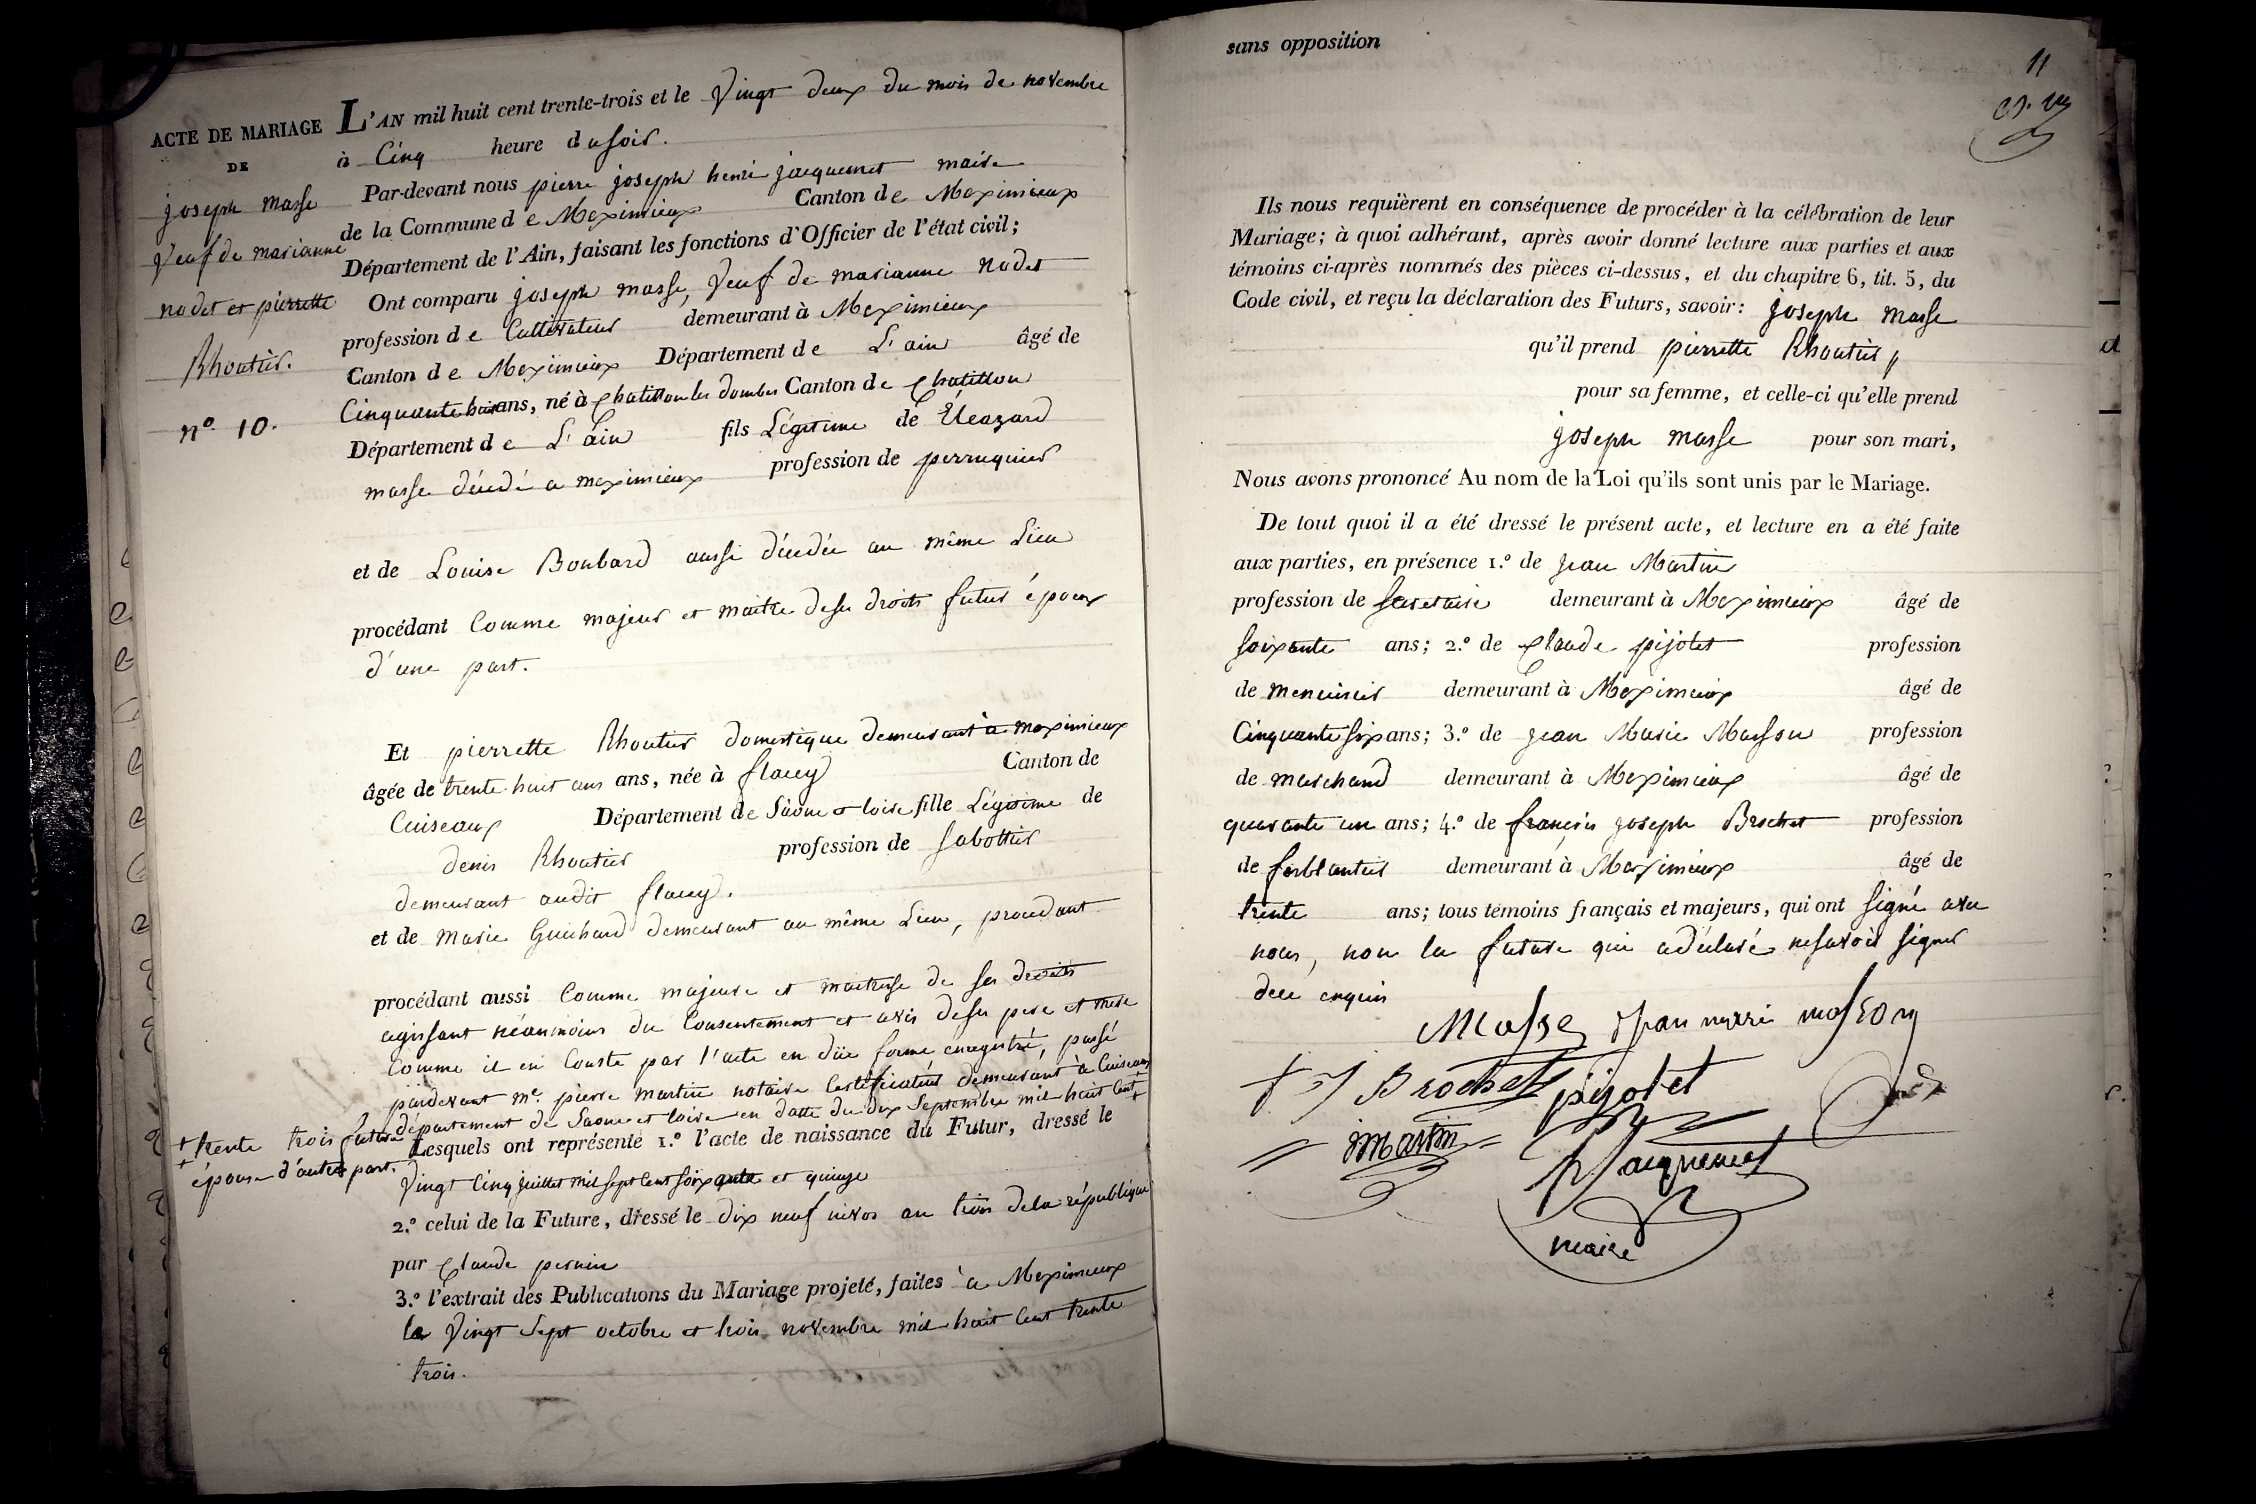 ACTE DE MARIAGE
DE
joseph masse
Veuf de marianne
nodet et pierrette
Rhoutier.
nº. 10.
L'AN mil huit cent trente-trois et le Vingt deux du mois de novembre
à Cinq heure du soir.
Par-devant nous pierre joseph henri jacquemet maire
de la Commune de Meximieux Canton de Meximieux
Département de l'Ain, faisant les fonctions d'Officier de l'état civil;
Ont comparu joseph masse, Veuf de marianne nodet
profession de Cultivateur demeurant à Meximieux
Canton de Meximieux Département de L'ain âgé de
Cinquante huit ans, né à Chatillon les dombes Canton de Chatillon
Département de L'ain fils Légitime de Éleazard
masse décédé a meximieux profession de perruquier
et de Louise Boubard aussi décédée au même Lieu
procédant Comme majeur et maitre de ses droits futur époux
d'une part.
Et pierrette Rhoutier domestique demeurant à meximieux
âgée de trente huit ans ans, née à flacey Canton de
Cuiseaux Département de Saone et loire fille Légitime de
denis Rhoutier profession de Sabottier
demeurant audit flacey.
et de Marie Guichard demeurant au même Lieu, procedant
procédant aussi Comme majeure et maitresse de ses droits
agissant néanmoins du Consentement et avis de ses pere et mere
Comme il en Conste par l'acte en düe forme enregistré, passé
pardevant me. pierre martin notaire Certificateur demeurant à Cuiseaux
département de Saone et loire en datte du dix Septembre mil huit Cent +
+ trente trois future
+ épouse d'autre part.
Lesquels ont représenté 1.º l'acte de naissance du Futur, dressé le
Vingt Cinq juillet mil sept Cent soixante et quinze
2.º celui de la Future, dressé le dix neuf nivos an trois de la république
par Claude pernin
3.º l'extrait des Publications du Mariage projeté, faites à Meximieux
le Vingt Sept octobre et trois novembre mil huit Cent trente
trois.
sans opposition
11
Ils nous requièrent en conséquence de procéder à la célébration de leur
Mariage; à quoi adhérant, après avoir donné lecture aux parties et aux
témoins ci-après nommés des pièces ci-dessus, et du chapitre 6, tit. 5, du
Code civil, et reçu la déclaration des Futurs, savoir: joseph masse
qu'il prend pierrette Rhoutier
pour sa femme, et celle-ci qu'elle prend
joseph masse pour son mari,
Nous avons prononcé Au nom de la Loi qu'ils sont unis par le Mariage.
De tout quoi il a été dressé le présent acte, et lecture en a été faite
aux parties, en présence 1.º de jean Martin
profession de Secretaire demeurant à Meximieux âgé de
soixante ans; 2.º de Claude pijolet profession
de menuisier demeurant à Meximieux âgé de
Cinquante six ans; 3.º de jean Marie Masson profession
de marchand demeurant à Meximieux âgé de
quarante un ans; 4.º de françois joseph Brochet profession
de ferblantier demeurant à Meximieux âgé de
trente ans; tous témoins français et majeurs, qui ont signé avec
nous, non la future qui a déclaré ne savoir signer
de ce enquis
Masse jean marie masson
f J Brochet pijolet
jMartin
Jacquemet
maire